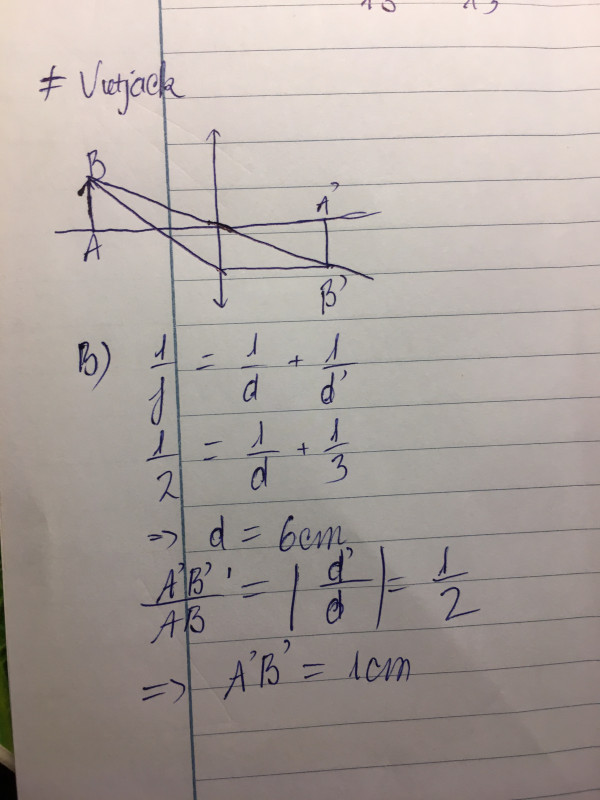 ≠ Vietjack
B
A'
A
B'
B) 1/f = 1/d + 1/d'
1/2 = 1/d + 1/3
=> d = 6cm
A'B'/AB = |d'/d| = 1/2
=> A'B' = 1cm